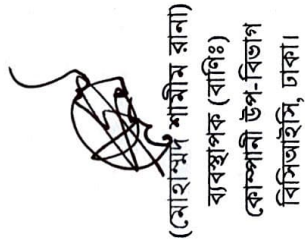 (মোহাম্মদ শামীম রানা)
ব্যবস্থাপক (বাণিঃ)
কোম্পানী উপ-বিভাগ
বিসিআইসি, ঢাকা।